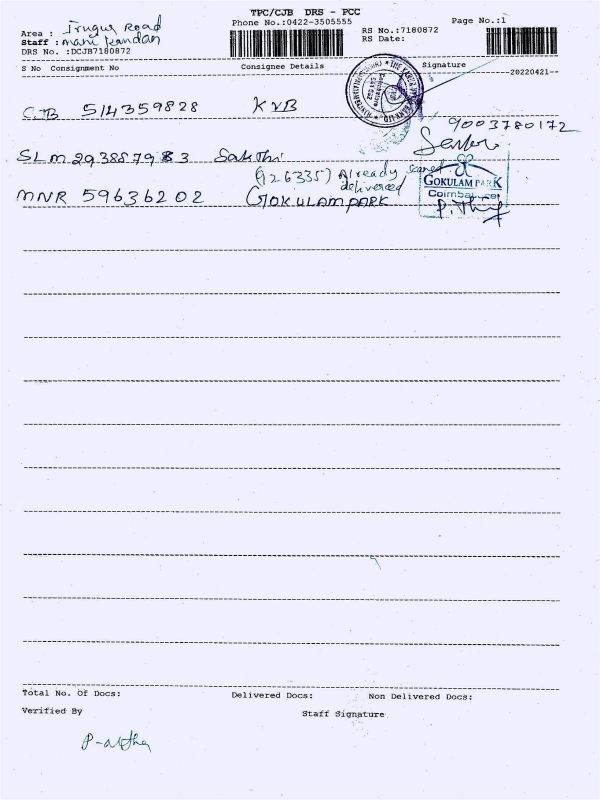 TPC/CJB DRS - PCC
Phone No.:0422-3505555
Page No.:1
Area : Irugur Road
RS No.:7180872
Staff : Mani kandan
RS Date:
DRS No. :DCJB7180872
S No Consignment No Consignee Details Signature
--20220421--
CJB 514359828 KVB
9003780172
SLM 293857983 Sakthi
(126335) Already
delivered
MNR 59636202 GOKULAMPARK
GOKULAM PARK
Coimbatore
Total No. Of Docs: Delivered Docs: Non Delivered Docs:
Verified By Staff Signature